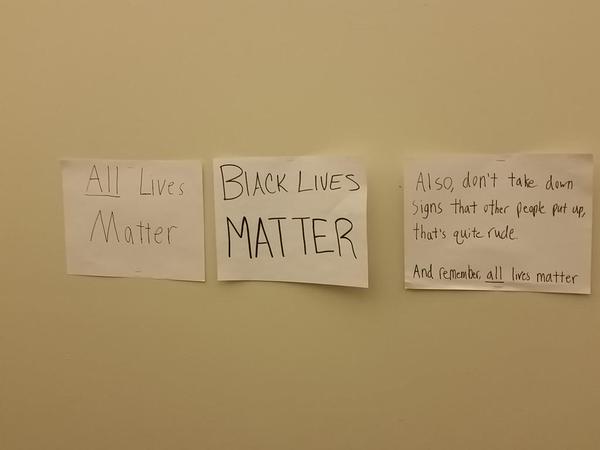 All Lives
Matter
BLACK LIVES
MATTER
Also, don't take down
signs that other people put up,
that's quite rude.
And remember, all lives matter